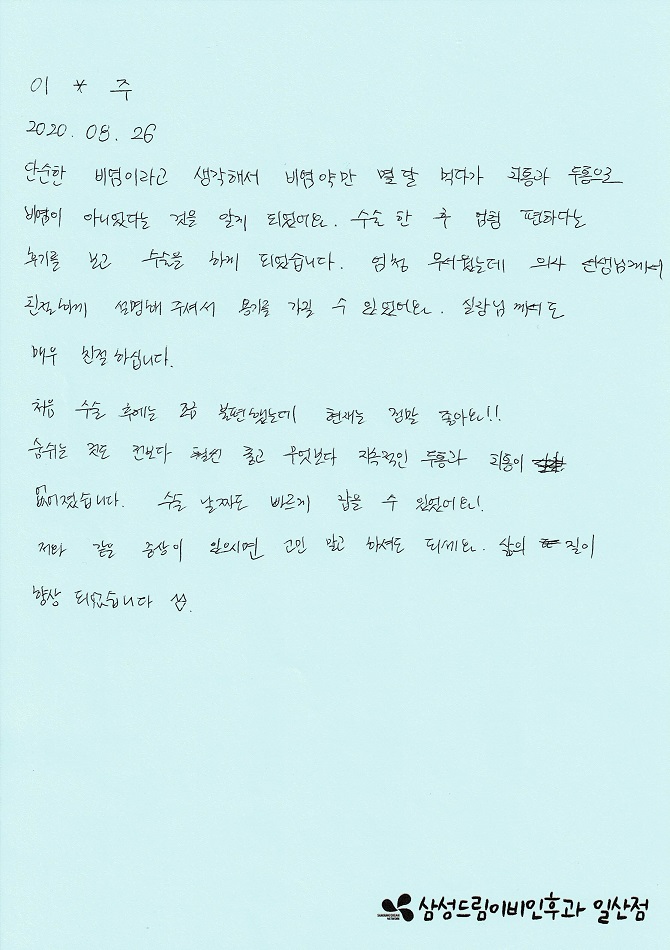 이 * 주
2020. 08. 26
단순한 비염이라고 생각해서 비염약만 몇달 먹다가 코통과 두통으로
비염이 아니었다는 것을 알게 되었어요. 수술 한 후 엄청 편하다는
후기를 보고 수술을 하게 되었습니다. 엄청 무서웠는데 의사 선생님께서
친절하게 설명해 주셔서 용기를 가질 수 있었어요. 실장님께서도
매우 친절하십니다.
처음 수술 후에는 조금 불편했는데 현재는 정말 좋아요!!
숨쉬는 것도 전보다 훨씬 좋고 무엇보다 지속적인 두통과
없어졌습니다. 수술 날짜도 빠르게 잡을 수 있었어요!
저와 같은 증상이 있으시면 고민 말고 하셔도 되세요. 삶의 질이
향상 되었습니다
삼성드림이비인후과 일산점